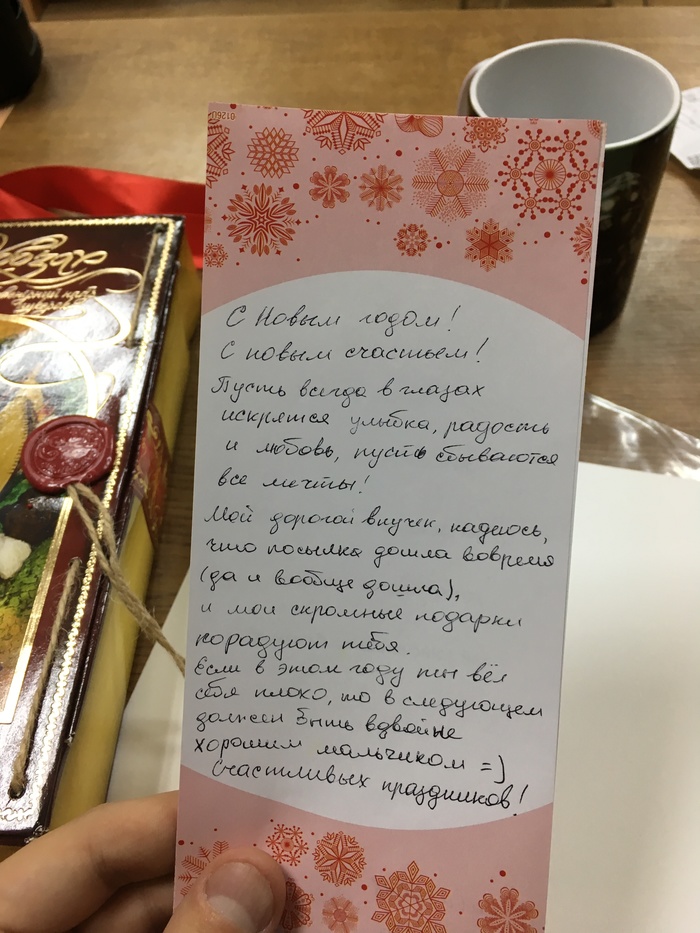 01260
С Новым годом!
С новым счастьем!
Пусть всегда в глазах
искрятся улыбка, радость
и любовь, пусть сбываются
все мечты!
Мой дорогой внучек, надеюсь,
что посылка дошла вовремя
(да и вообще дошла),
и мои скромные подарки
порадуют тебя.
Если в этом году ты вёл
себя плохо, то в следующем
должен быть вдвойне
хорошим мальчиком =)
Счастливых праздников!